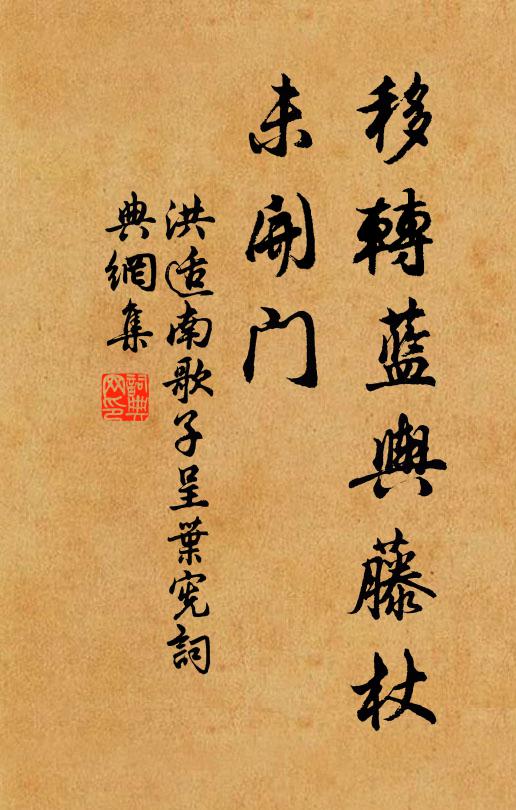 移轉藍輿藤杖
未開門
洪适南歌子呈葉宪詞
典網集
詞典
网印